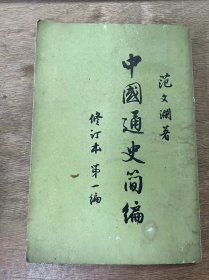 范文瀾著
中國通史简编
修訂本 第一编